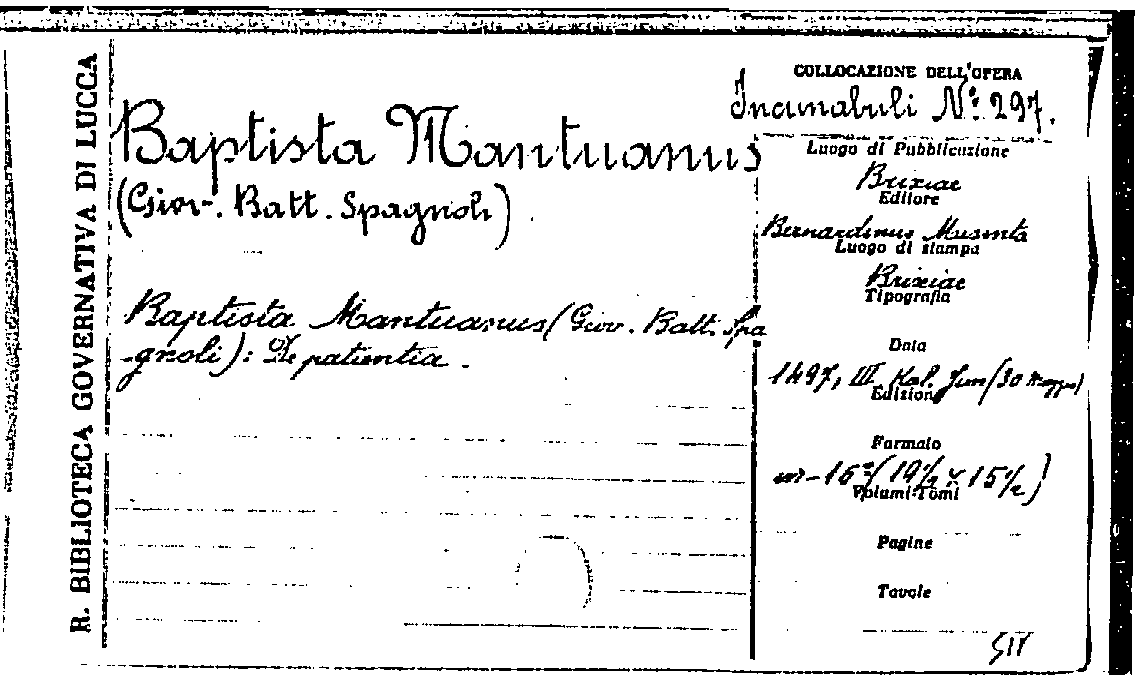 R. BIBLIOTECA GOVERNATIVA DI LUCCA
Baptista Mantuanus
(Giov. Batt. Spagnoli).
Baptista Mantuanus (Giov. Batt. Spa
-gnoli): De patientia.
COLLOCAZIONE DELL'OPERA
Incunabuli Nº 297.
Luogo di Pubblicazione
Brixiae
Editore
Bernardinus Misinta
Luogo di stampa
Brixiae
Tipografia
Data
1497, III Kal. Jun (30 Maggio)
Edizione
Formato
in-16º (19 1/2 x 15 1/2)
Volumi-Tomi
Pagine
Tavole